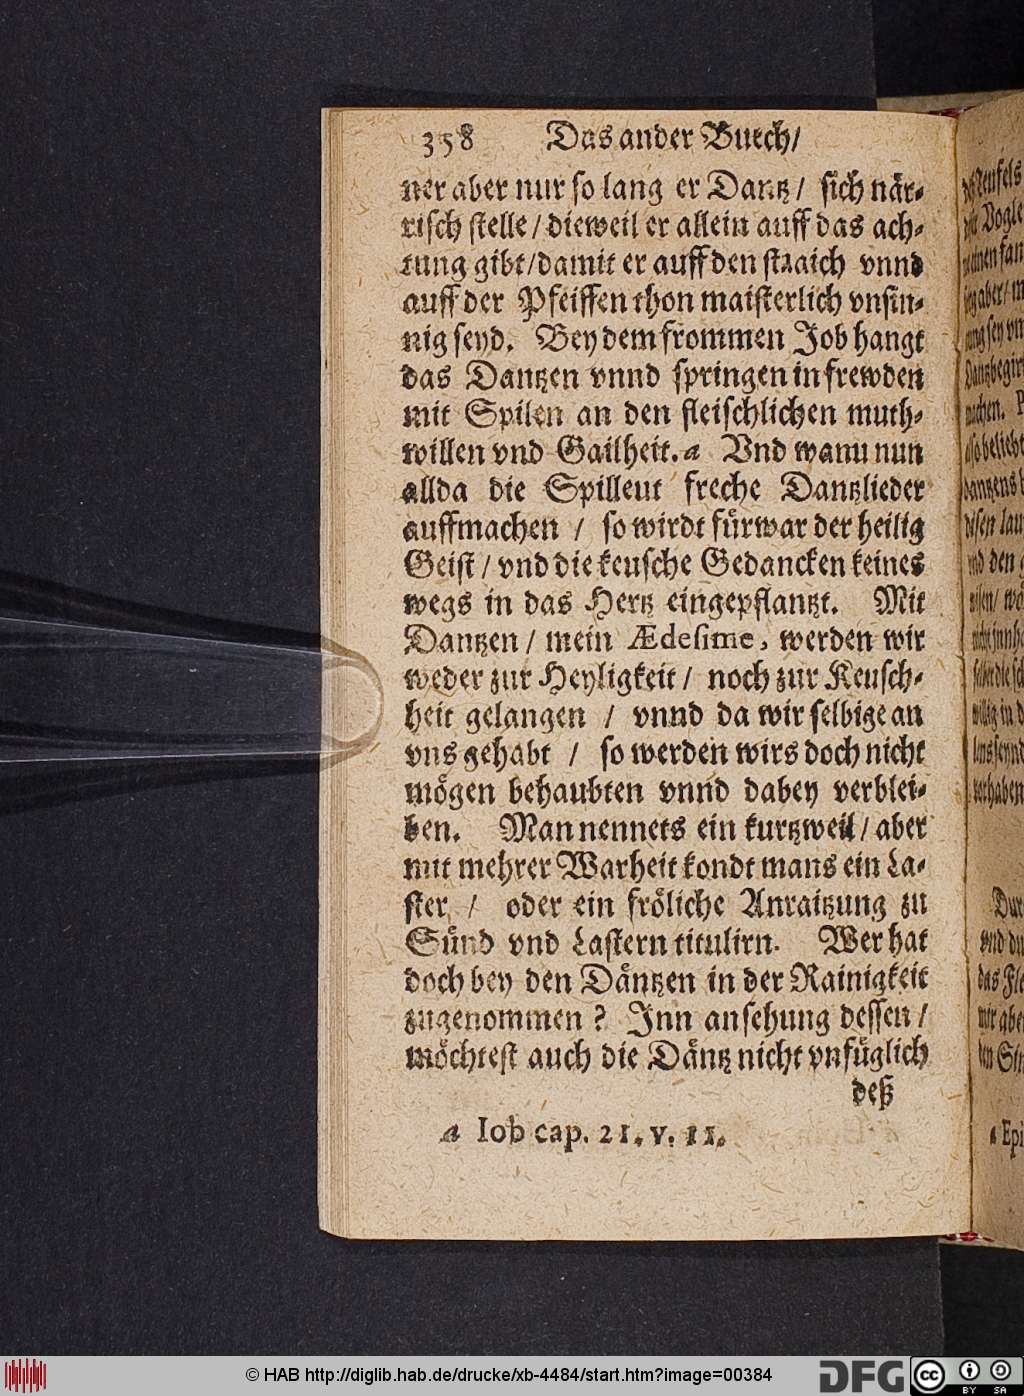 358 Das ander Buech/
ner aber nur so lang er Dantz / sich när-
risch stelle / dieweil er allein auff das ach-
tung gibt/damit er auff den straich vnnd
auff der Pfeiffen thon maisterlich vnsin-
nig seyd. Bey dem frommen Job hangt
das Dantzen vnnd springen in frewden
mit Spilen an den fleischlichen muth-
willen vnd Gailheit. a Vnd wanu nun
allda die Spilleut freche Dantzlieder
auffmachen / so wirdt fürwar der heilig
Geist / vnd die keusche Gedancken keines
wegs in das Hertz eingepflantzt. Mit
Dantzen / mein Ædesime, werden wir
weder zur Heyligkeit / noch zur Keusch-
heit gelangen / vnnd da wir selbige an
vns gehabt / so werden wirs doch nicht
mögen behaubten vnnd dabey verblei-
ben. Man nennets ein kurtzweil / aber
mit mehrer Warheit kondt mans ein La-
ster / oder ein fröliche Anraitzung zu
Sünd vnd Lastern titulirn. Wer hat
doch bey den Däntzen in der Rainigkeit
zugenommen ? Inn ansehung dessen /
möchtest auch die Däntz nicht vnfüglich
deß
a Iob cap. 21. v. 11.
© HAB http://diglib.hab.de/drucke/xb-4484/start.htm?image=00384
DFG
CC BY SA